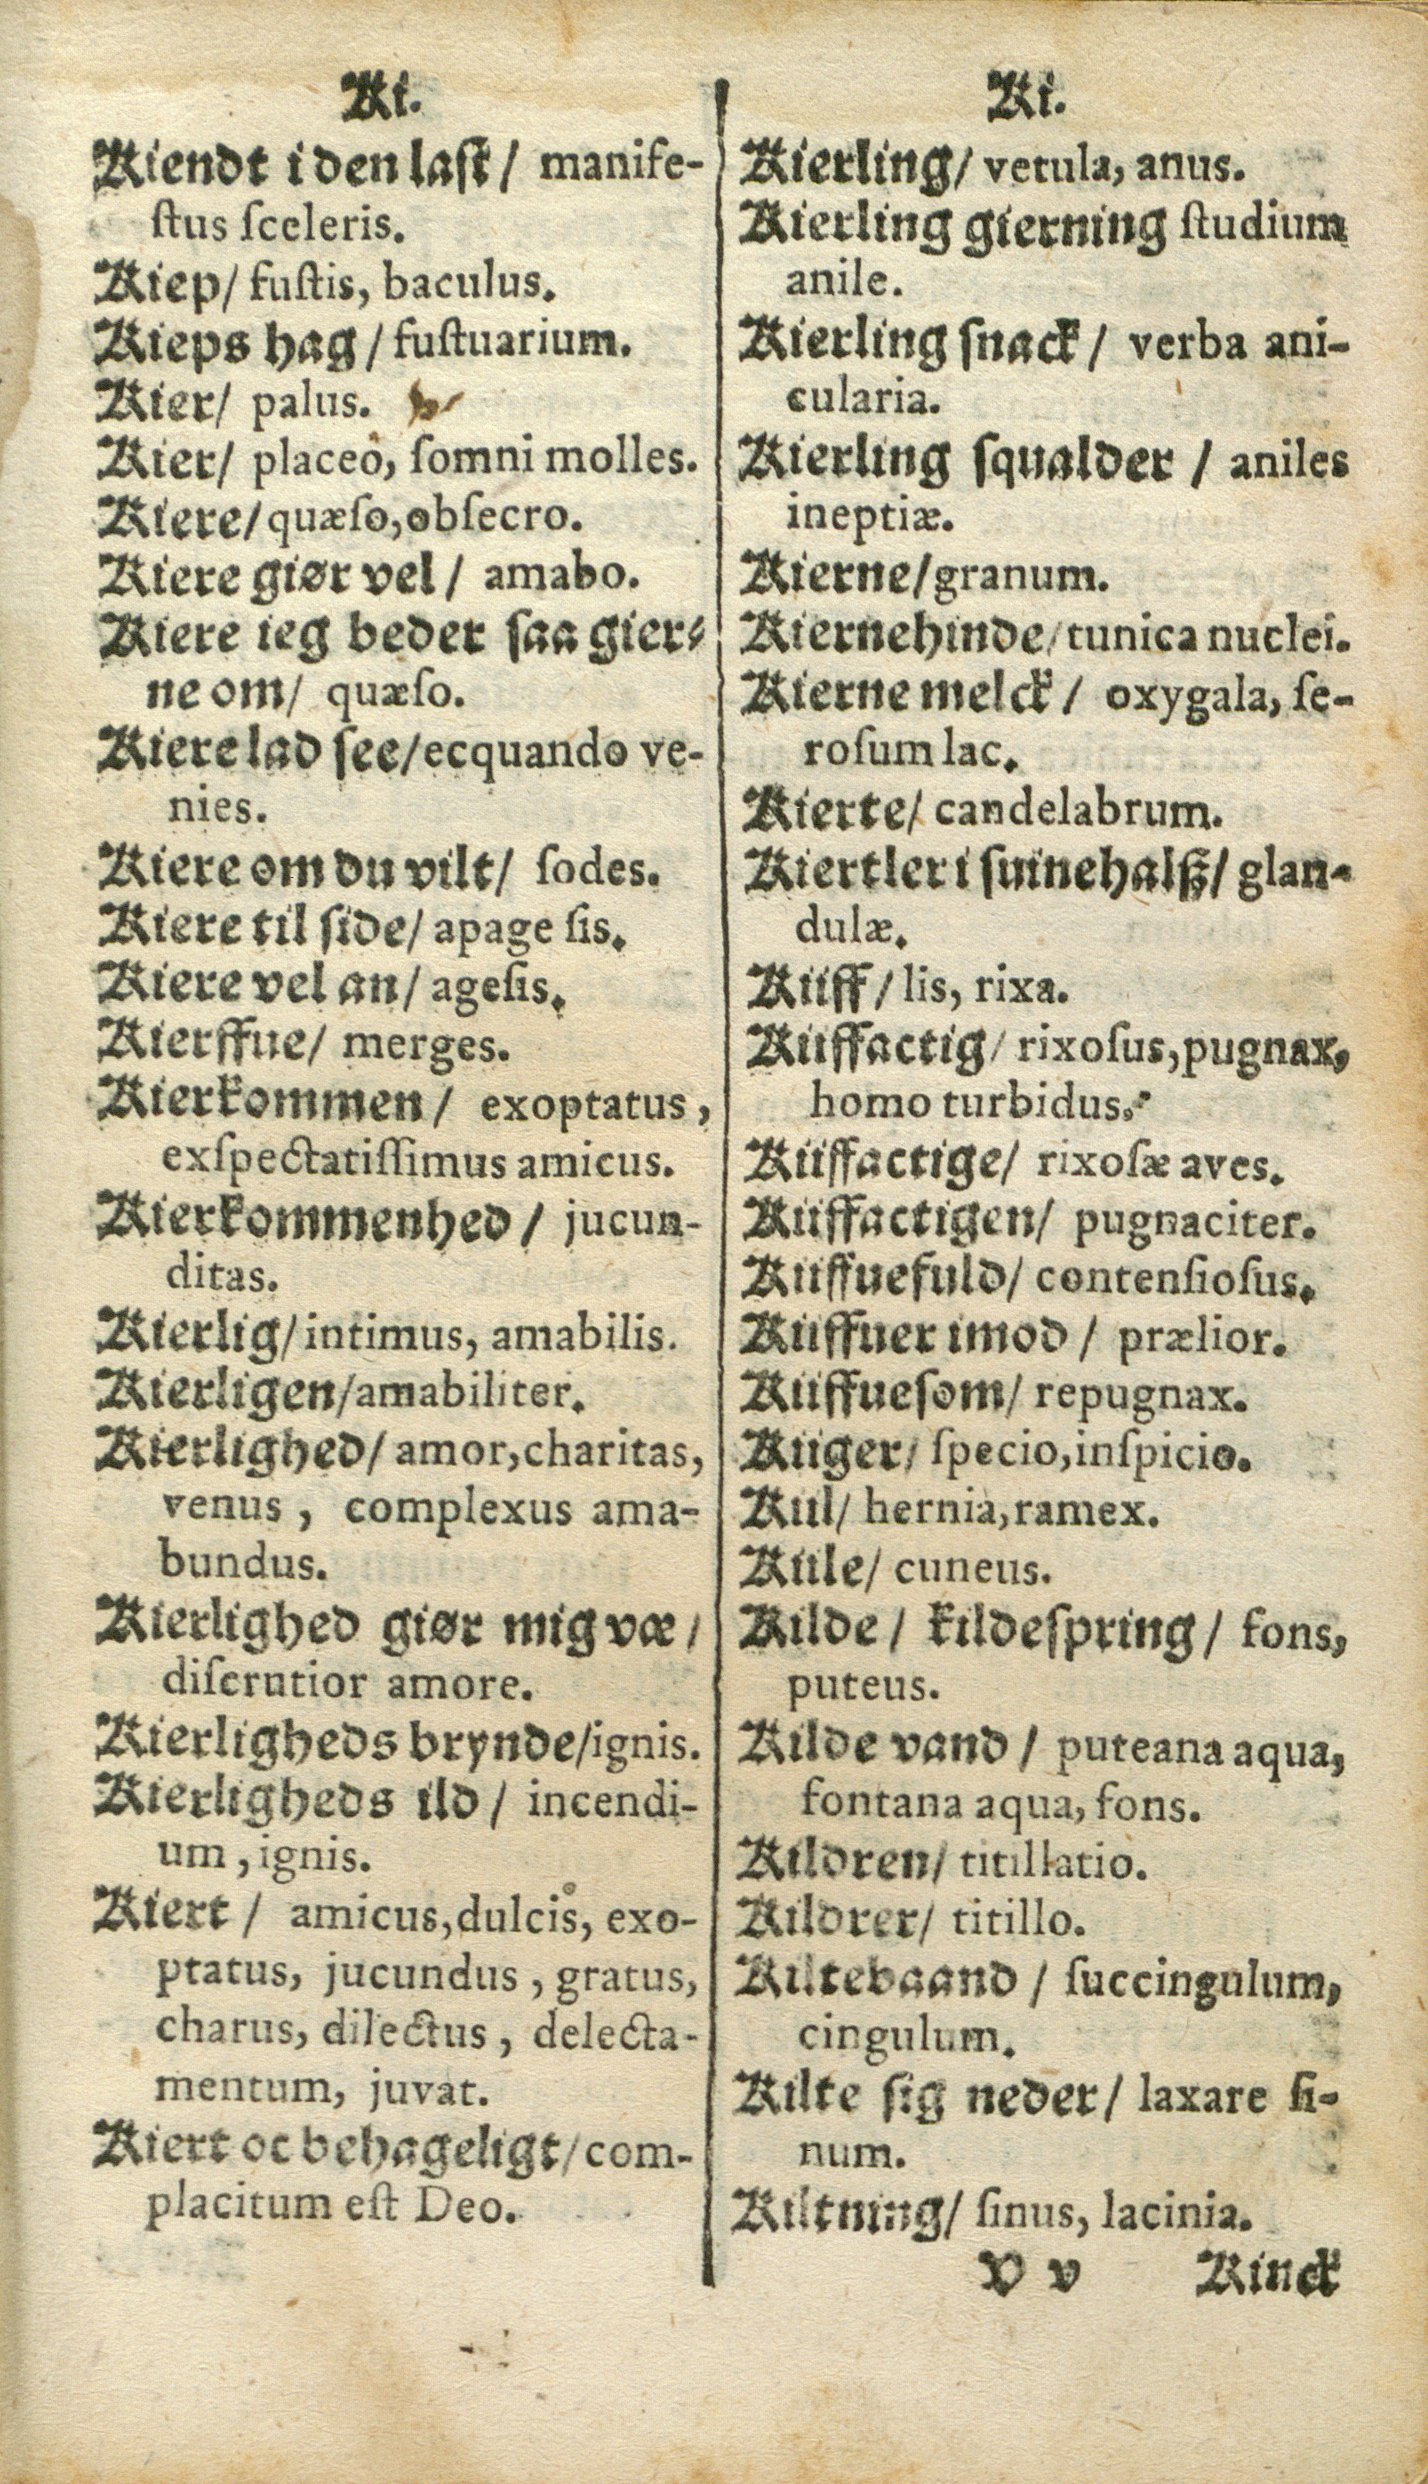 Ki.
Kiendt i den last/ manife-
ſtus ſceleris.
Kiep/ fuſtis, baculus.
Kieps hag/ fuſtuarium.
Kier/ palus.
Kier/ placeo, ſomni molles.
Kiere/ quæſo, obſecro.
Kiere giør vel/ amabo.
Kiere ieg beder ſaa gier-
ne om/ quæſo.
Kiere lad ſee/ ecquando ve-
nies.
Kiere om du vilt/ ſodes.
Kiere til ſide/ apage ſis.
Kiere vel an/ ageſis.
Kierffue/ merges.
Kierkommen/ exoptatus,
exſpectatiſſimus amicus.
Kierkommenhed/ jucun-
ditas.
Kierlig/ intimus, amabilis.
Kierligen/ amabiliter.
Kierlighed/ amor, charitas,
venus, complexus ama-
bundus.
Kierlighed giør mig væ/
diſcrutior amore.
Kierligheds brynde/ ignis.
Kierligheds ild/ incendi-
um, ignis.
Kiert/ amicus, dulcis, exo-
ptatus, jucundus, gratus,
charus, dilectus, delecta-
mentum, juvat.
Kiert oc behageligt/ com-
placitum eſt Deo.
Ki.
Kierling/ vetula, anus.
Kierling gierning ſtudium
anile.
Kierling ſnack/ verba ani-
cularia.
Kierling ſqualder/ aniles
ineptiæ.
Kierne/ granum.
Kiernehinde/ tunica nuclei.
Kierne melck/ oxygala, ſe-
roſum lac.
Kierte/ candelabrum.
Kiertler i ſuinehalß/ glan-
dulæ.
Kiiff/ lis, rixa.
Kiiffactig/ rixoſus, pugnax,
homo turbidus.
Kiiffactige/ rixoſæ aves.
Kiiffactigen/ pugnaciter.
Kiiffuefuld/ contenſioſus.
Kiiffuer imod/ prælior.
Kiiffueſom/ repugnax.
Kiiger/ ſpecio, inſpicio.
Kiil/ hernia, ramex.
Kiile/ cuneus.
Kilde/ kildeſpring/ fons,
puteus.
Kilde vand/ puteana aqua,
fontana aqua, fons.
Kildren/ titillatio.
Kildrer/ titillo.
Kiltebaand/ ſuccingulum,
cingulum.
Kilte ſig neder/ laxare ſi-
num.
Kiltning/ ſinus, lacinia.
V v Kinck